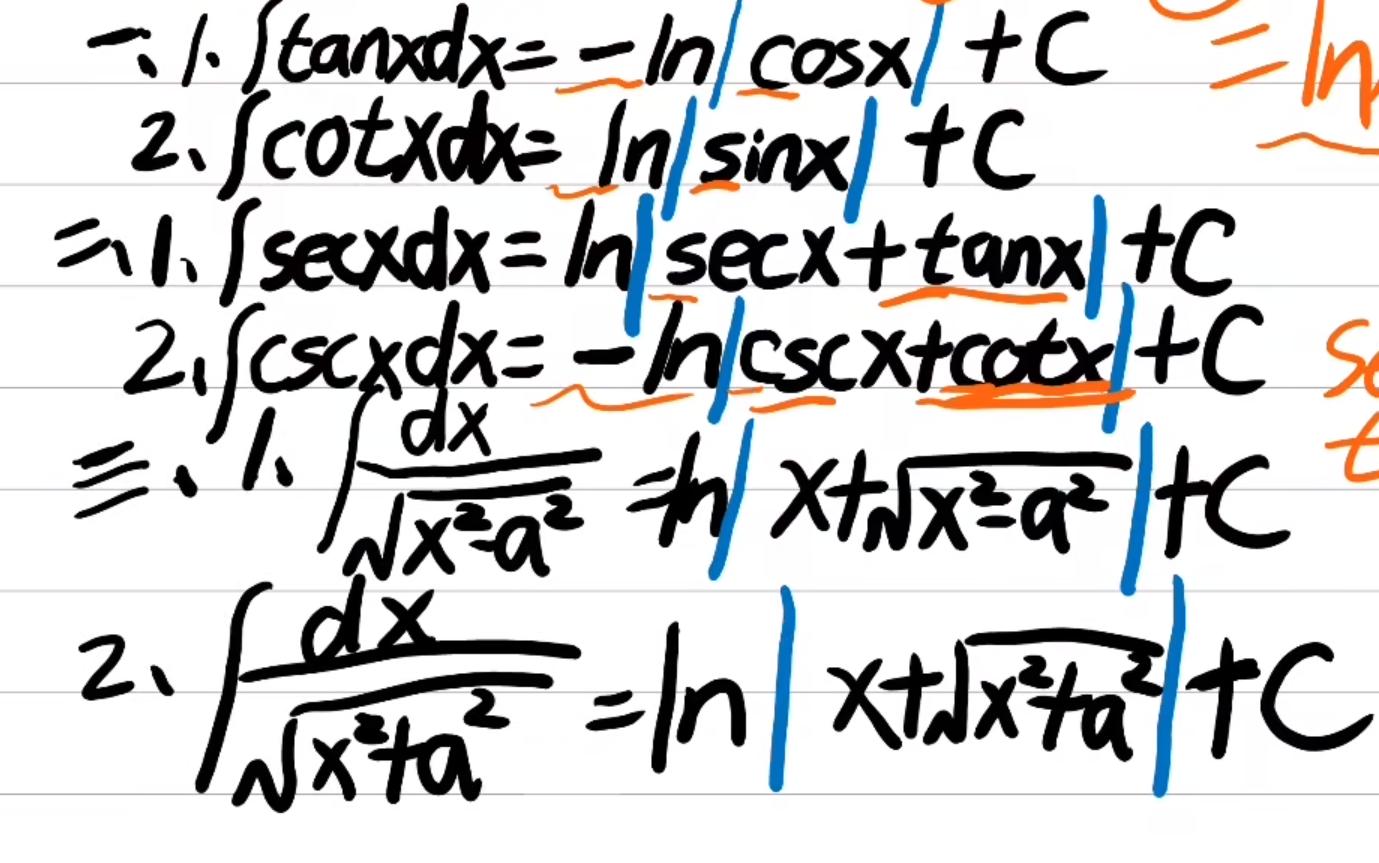 一、1.∫tanxdx=-ln|cosx|+C
=ln
2、∫cotxdx=ln|sinx|+C
二、1、∫secxdx=ln|secx+tanx|+C
2、∫cscxdx=-ln|cscx+cotx|+C
三、1、∫dx/√(x²-a²)=ln|x+√(x²-a²)|+C
2、∫dx/√(x²+a²)=ln|x+√(x²+a²)|+C